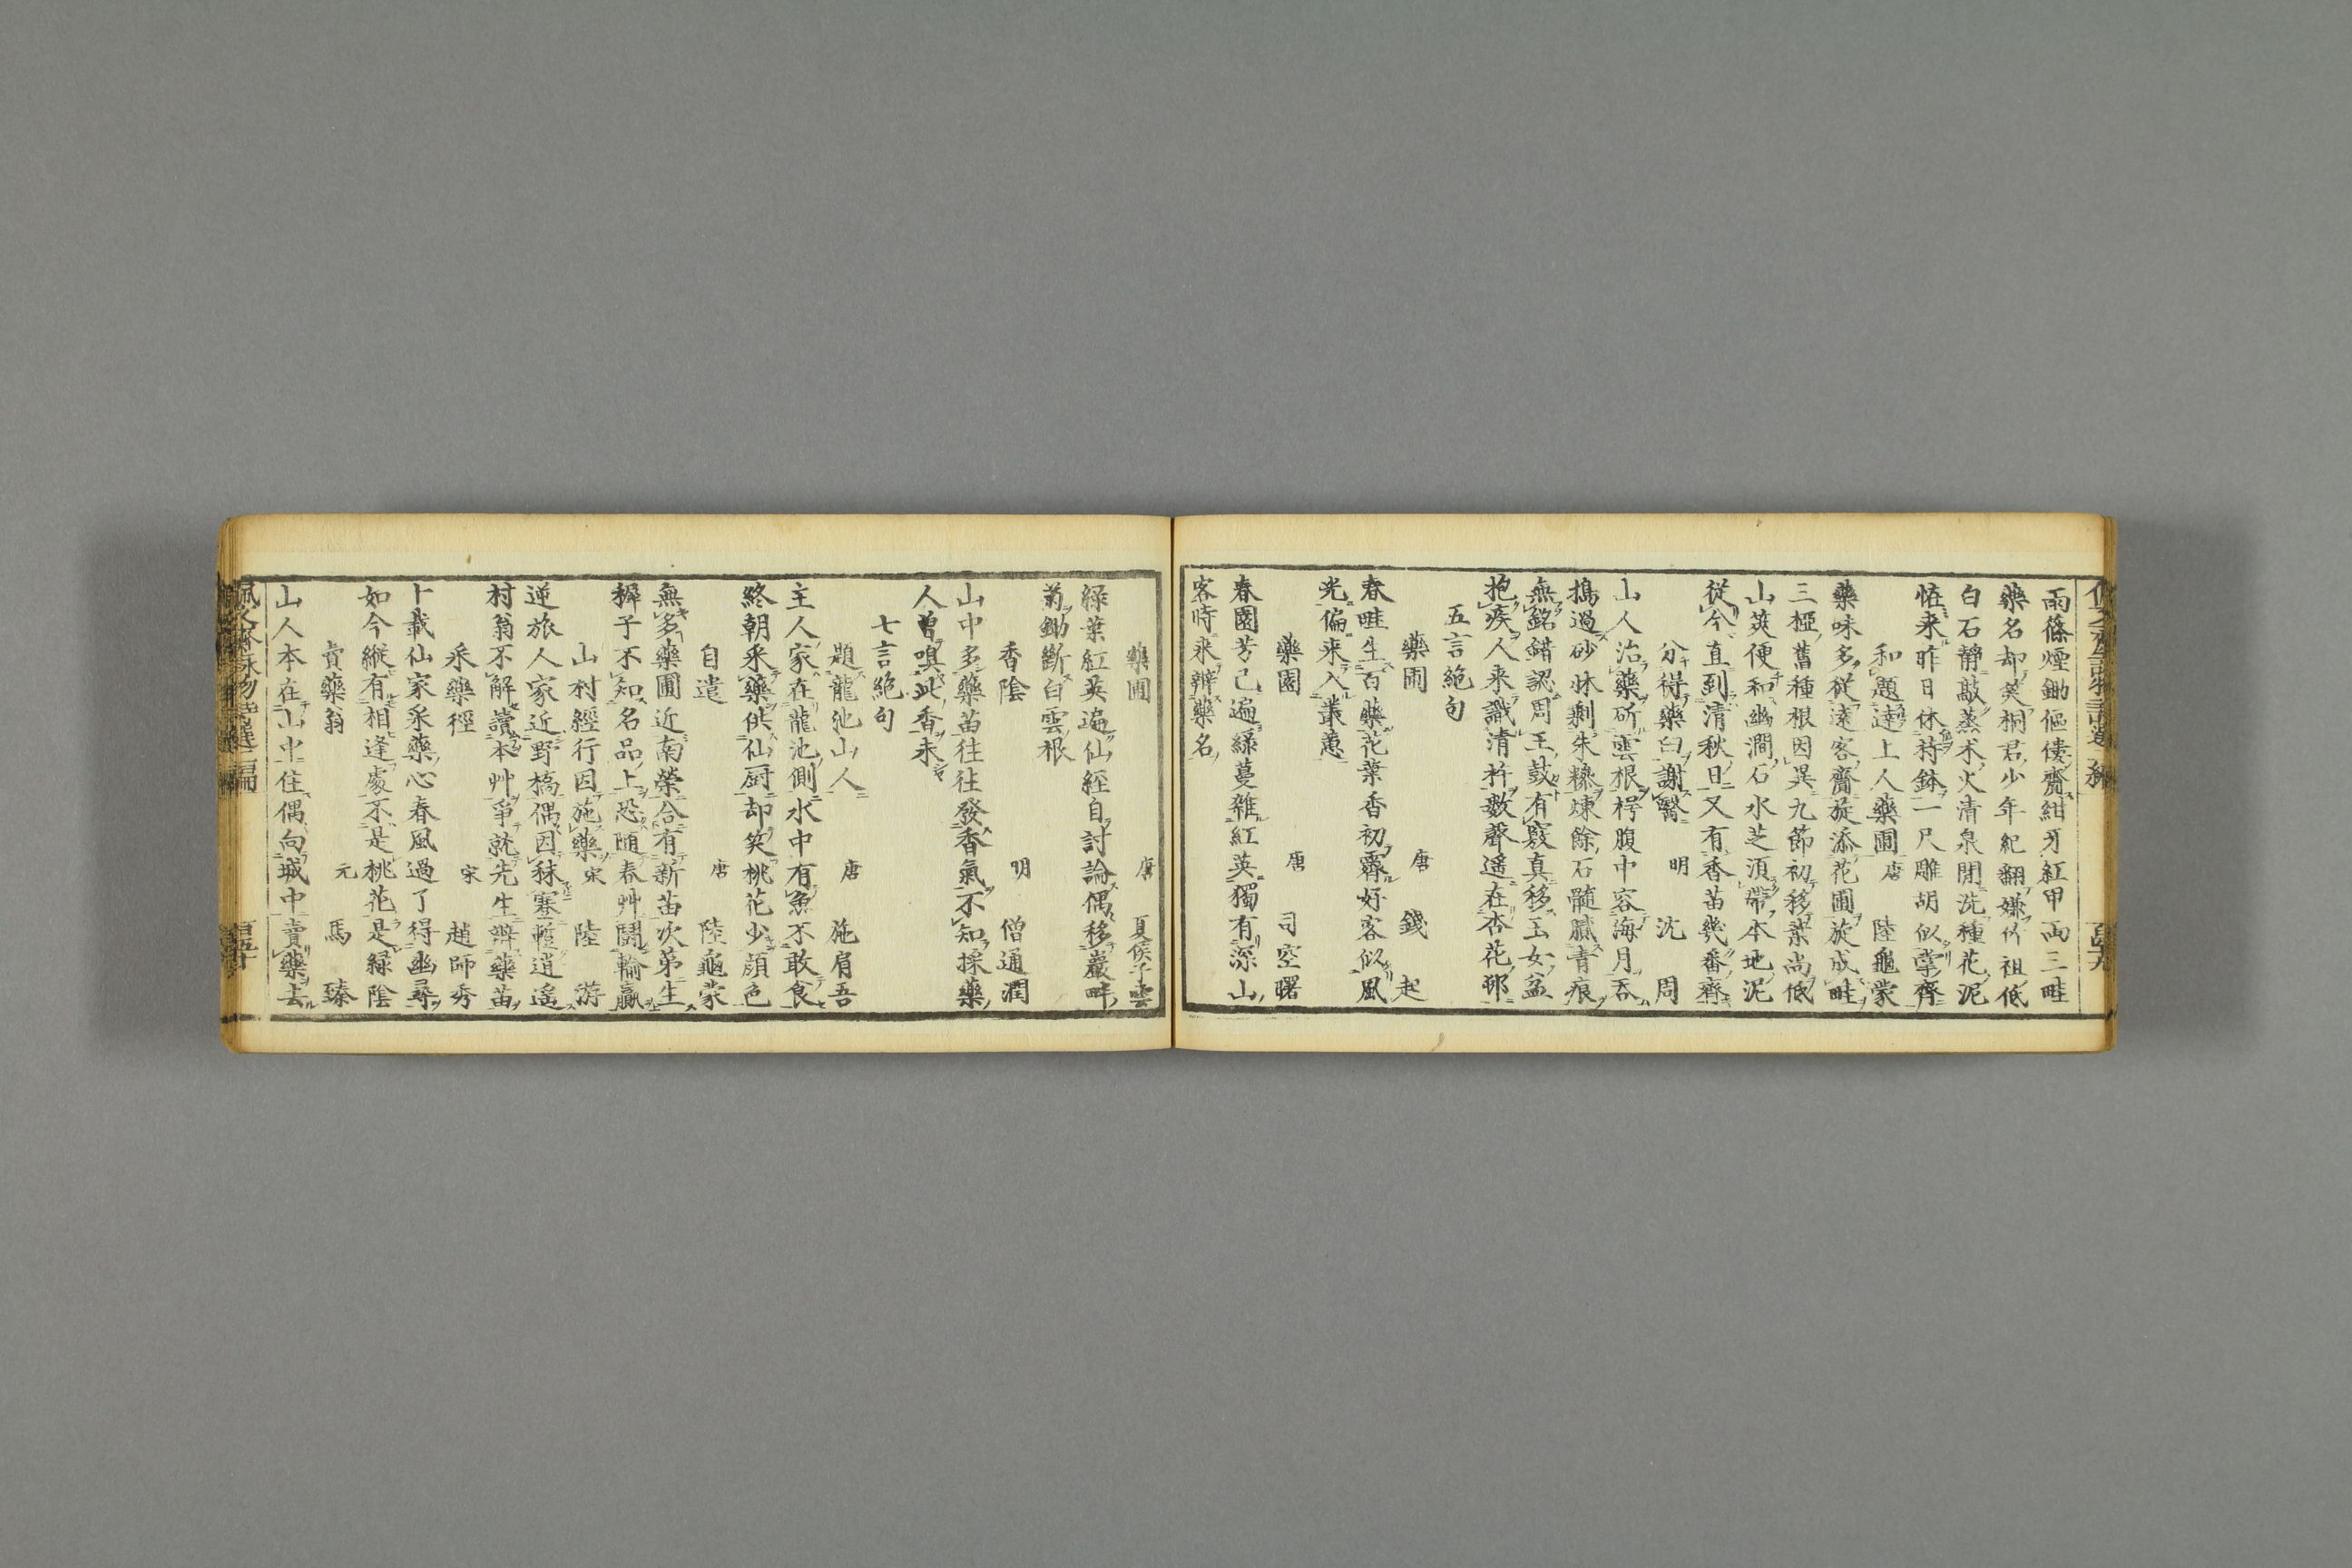 雨篠煙鋤傴僂齊紺牙紅甲兩三畦
藥名却笑桐君少年紀翻嫌竹祖低
白石靜敲蒸朮火清泉閒洗種花泥
恠来昨日休持鉢一尺雕胡似掌齊
和題達上人藥圃 唐 陸龜蒙
藥味多從遠客齎旋添花圃旋成畦
三椏舊種根因異九節初移葉尚低
山莢便和幽澗石水芝須帶本地泥
從今直到清秋日又有香苗幾番齊
分得藥臼謝醫 明 沈周
山人治藥斫雲根枵腹中容海月吞
搗過砂牀剰朱糝煉餘石髓膩青痕
無銘錯認周王鼓有竅真移玉女盆
抱疾人来識清杵數聲遥在杏花邨
五言絶句
藥圃 唐 錢起
春畦生百藥花葉香初霽好客似風
光偏来入叢蕙
藥園 唐 司空曙
春園芳已遍緑蔓雜紅英獨有深山
客時来辨藥名
藥圃 唐 夏侯子雲
緑葉紅英遍仙經自討論偶移巖畔
菊鋤斷白雲根
香陰 明 僧通潤
山中多藥苗往往發香氣不知採藥
人曽嗅此香未
七言絶句
題龍池山人 唐 施肩吾
主人家在龍池側水中有魚不敢食
終朝采藥供仙厨却笑桃花少顔色
自遣 唐 陸龜蒙
無多藥圃近南榮合有新苗次第生
穉子不知名品上恐随春艸鬪輸贏
山村經行因施藥 宋 陸游
逆旅人家近野橋偶因秣蹇暫逍遥
村翁不解讀本艸爭就先生辨藥苗
采藥徑 宋 趙師秀
卜載仙家采藥心春風過了得幽尋
如今縱有相逢處不是桃花是緑陰
賣藥翁 元 馬臻
山人本在山中住偶向城中賣藥去
佩文齋詠物詩選二編